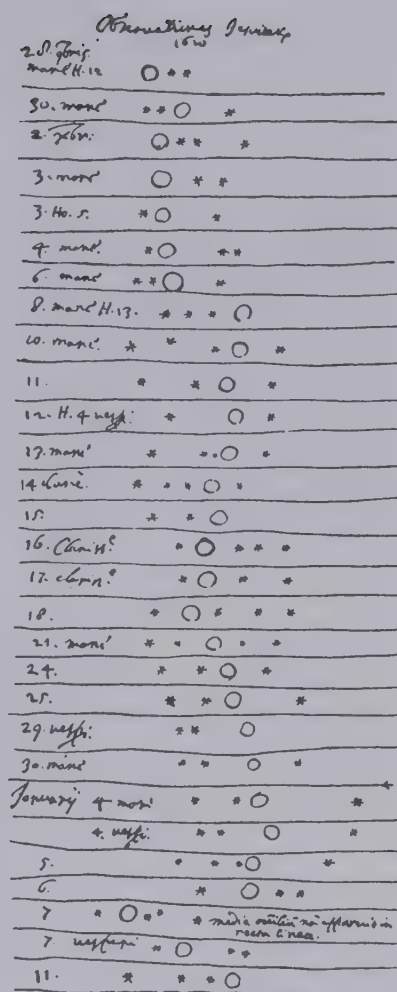 Observationes Jesuitarum
1610
28. 9bris
mane H. 12
30. mane
2. Xbri.
3. mane
3. Ho. 5.
4. mane.
6. mane
8. mane H. 13.
10. mane.
11.
12. H. 4 vesp:
13. mane
14 clare.
15.
16. Clariss.e
17. clariss.e
18.
21. mane
24.
25.
29. vesp:
30. mane
January 4 mane
4. vesp.
5.
6.
7 media stella no apparuit in
recta linea.
7 vesperi
11.